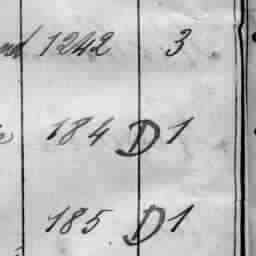 1242 3
184 D 1
185 D 1